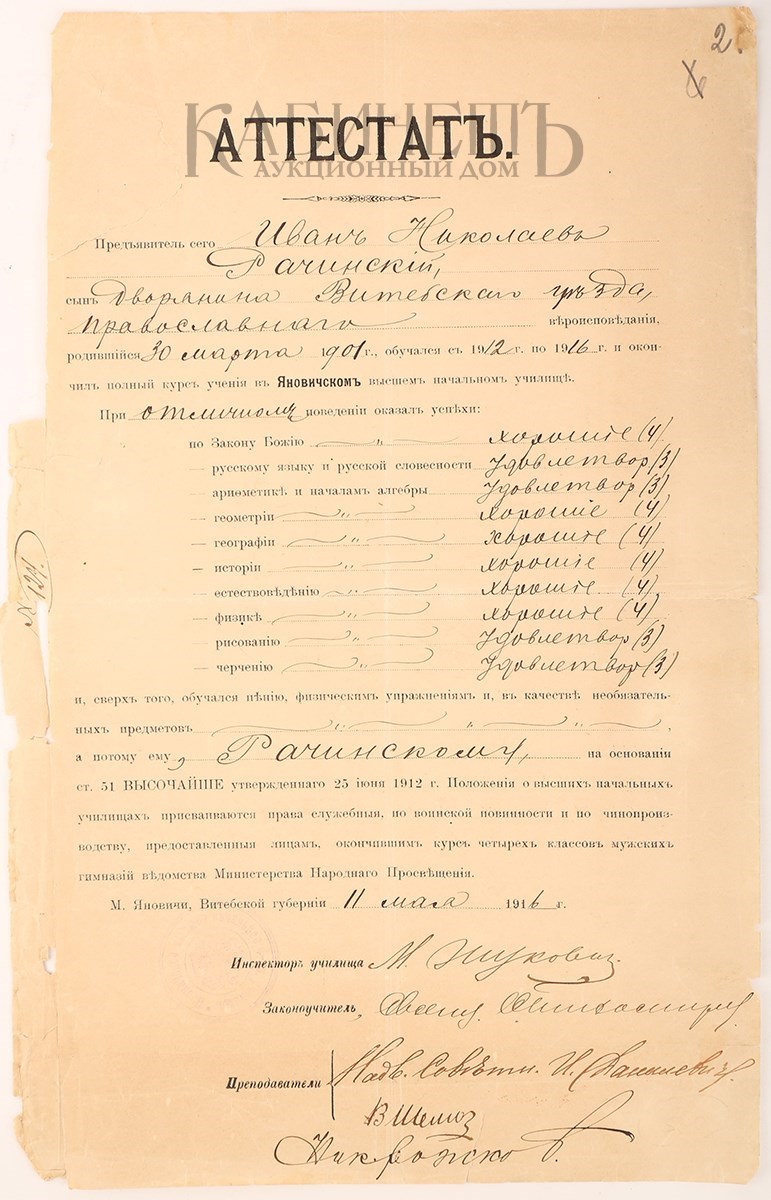 2
КАБИНЕТЪ
АТТЕСТАТЪ.
АУКЦИОННЫЙ ДОМ
Предъявитель сего Иванъ Николаевъ
Рачинскій,
сынъ дворянина Витебскаго уѣзда,
православнаго вѣроисповѣданія,
родившійся 30 марта 1901 г., обучался съ 1912 г. по 1916 г. и окон-
чилъ полный курсъ ученія въ Яновичскомъ высшемъ начальномъ училищѣ.
При отличномъ поведеніи оказалъ успѣхи:
по Закону Божію „ хорошіе (4)
— русскому языку и русской словесности удовлетвор (3)
— ариѳметикѣ и началамъ алгебры удовлетвор (3)
— геометріи „ хорошіе (4)
— географіи „ хорошіе (4)
— исторіи „ хорошіе (4)
— естествовѣдѣнію „ хорошіе (4)
— физикѣ „ хорошіе (4)
— рисованію „ удовлетвор (3)
— черченію „ удовлетвор (3)
№ 124
и, сверхъ того, обучался пѣнію, физическимъ упражненіямъ и, въ качествѣ необязатель-
ныхъ предметовъ „ „ „ ,
а потому ему, Рачинскому, на основаніи
ст. 51 ВЫСОЧАЙШЕ утвержденнаго 25 іюня 1912 г. Положенія о высшихъ начальныхъ
училищахъ присваиваются права служебныя, по воинской повинности и по чинопроиз-
водству, предоставленныя лицамъ, окончившимъ курсъ четырехъ классовъ мужскихъ
гимназій вѣдомства Министерства Народнаго Просвѣщенія.
М. Яновичи, Витебской губерніи 11 мая 1916 г.
Инспекторъ училища М.
Законоучитель,
Преподаватели Надв. Совѣтн. И.